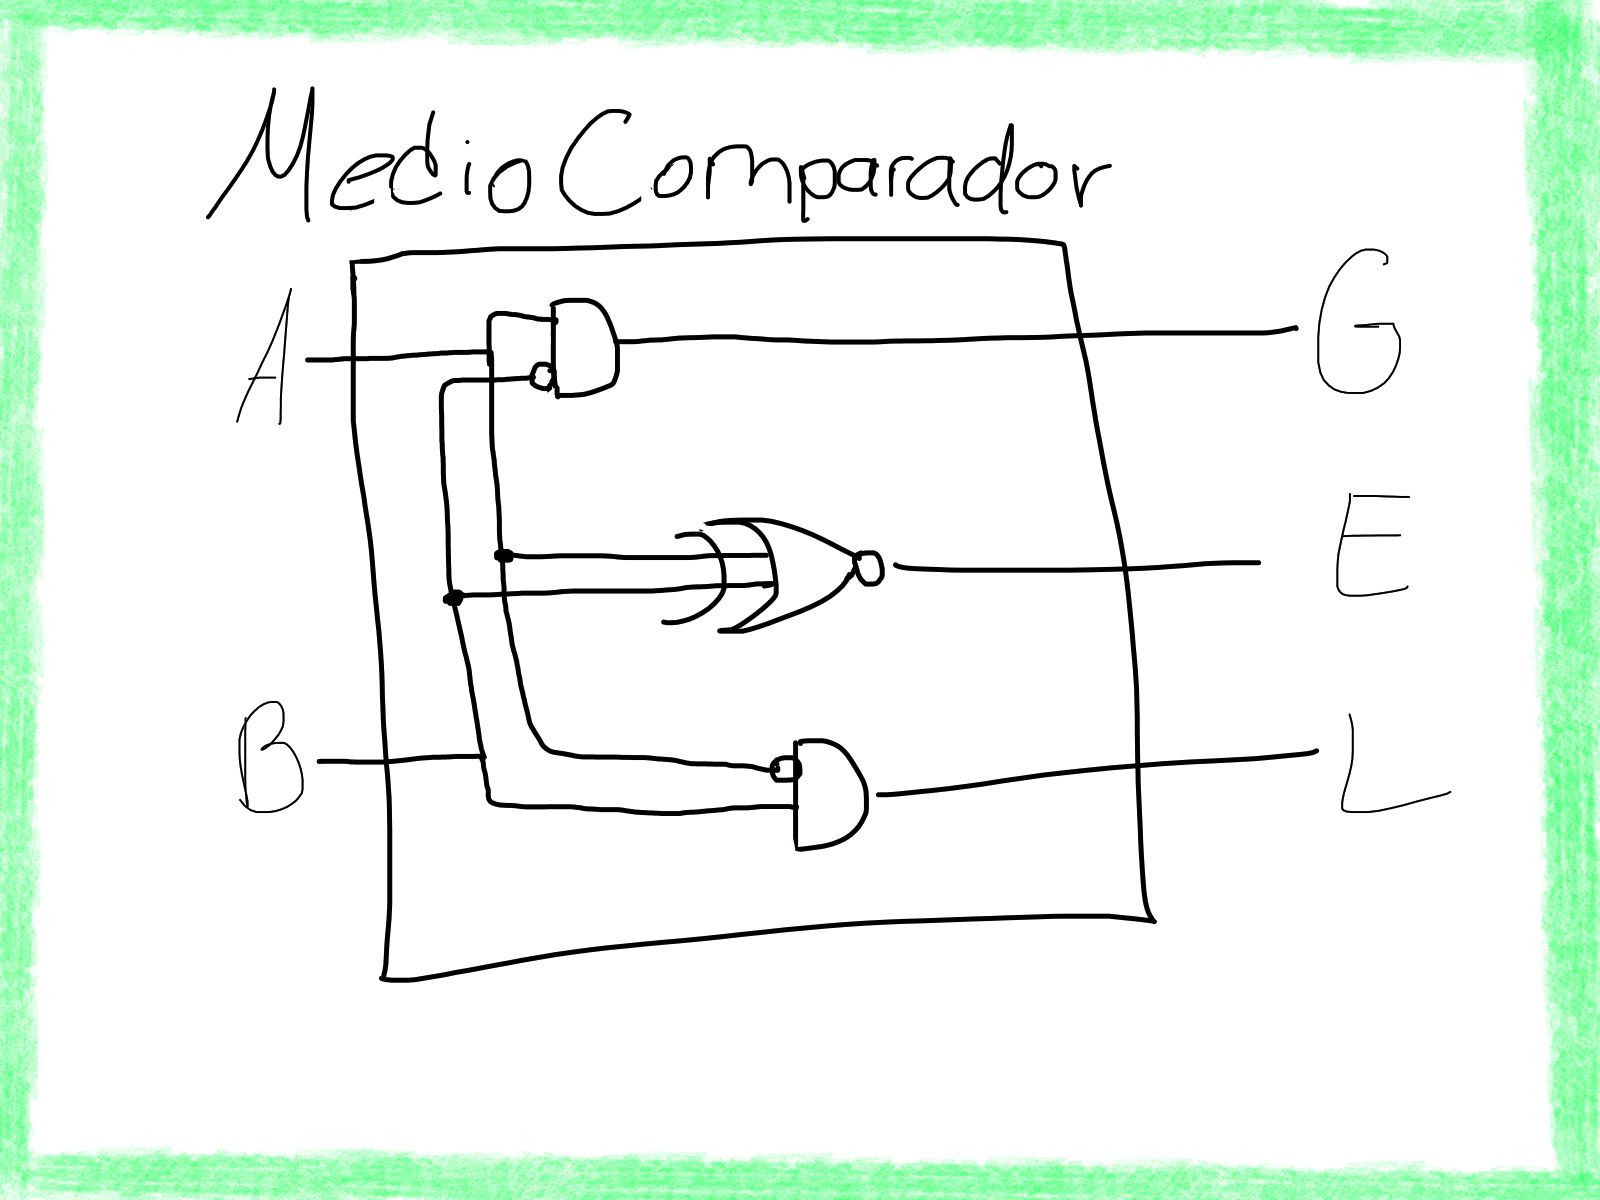 Medio Comparador
A
G
E
B
L